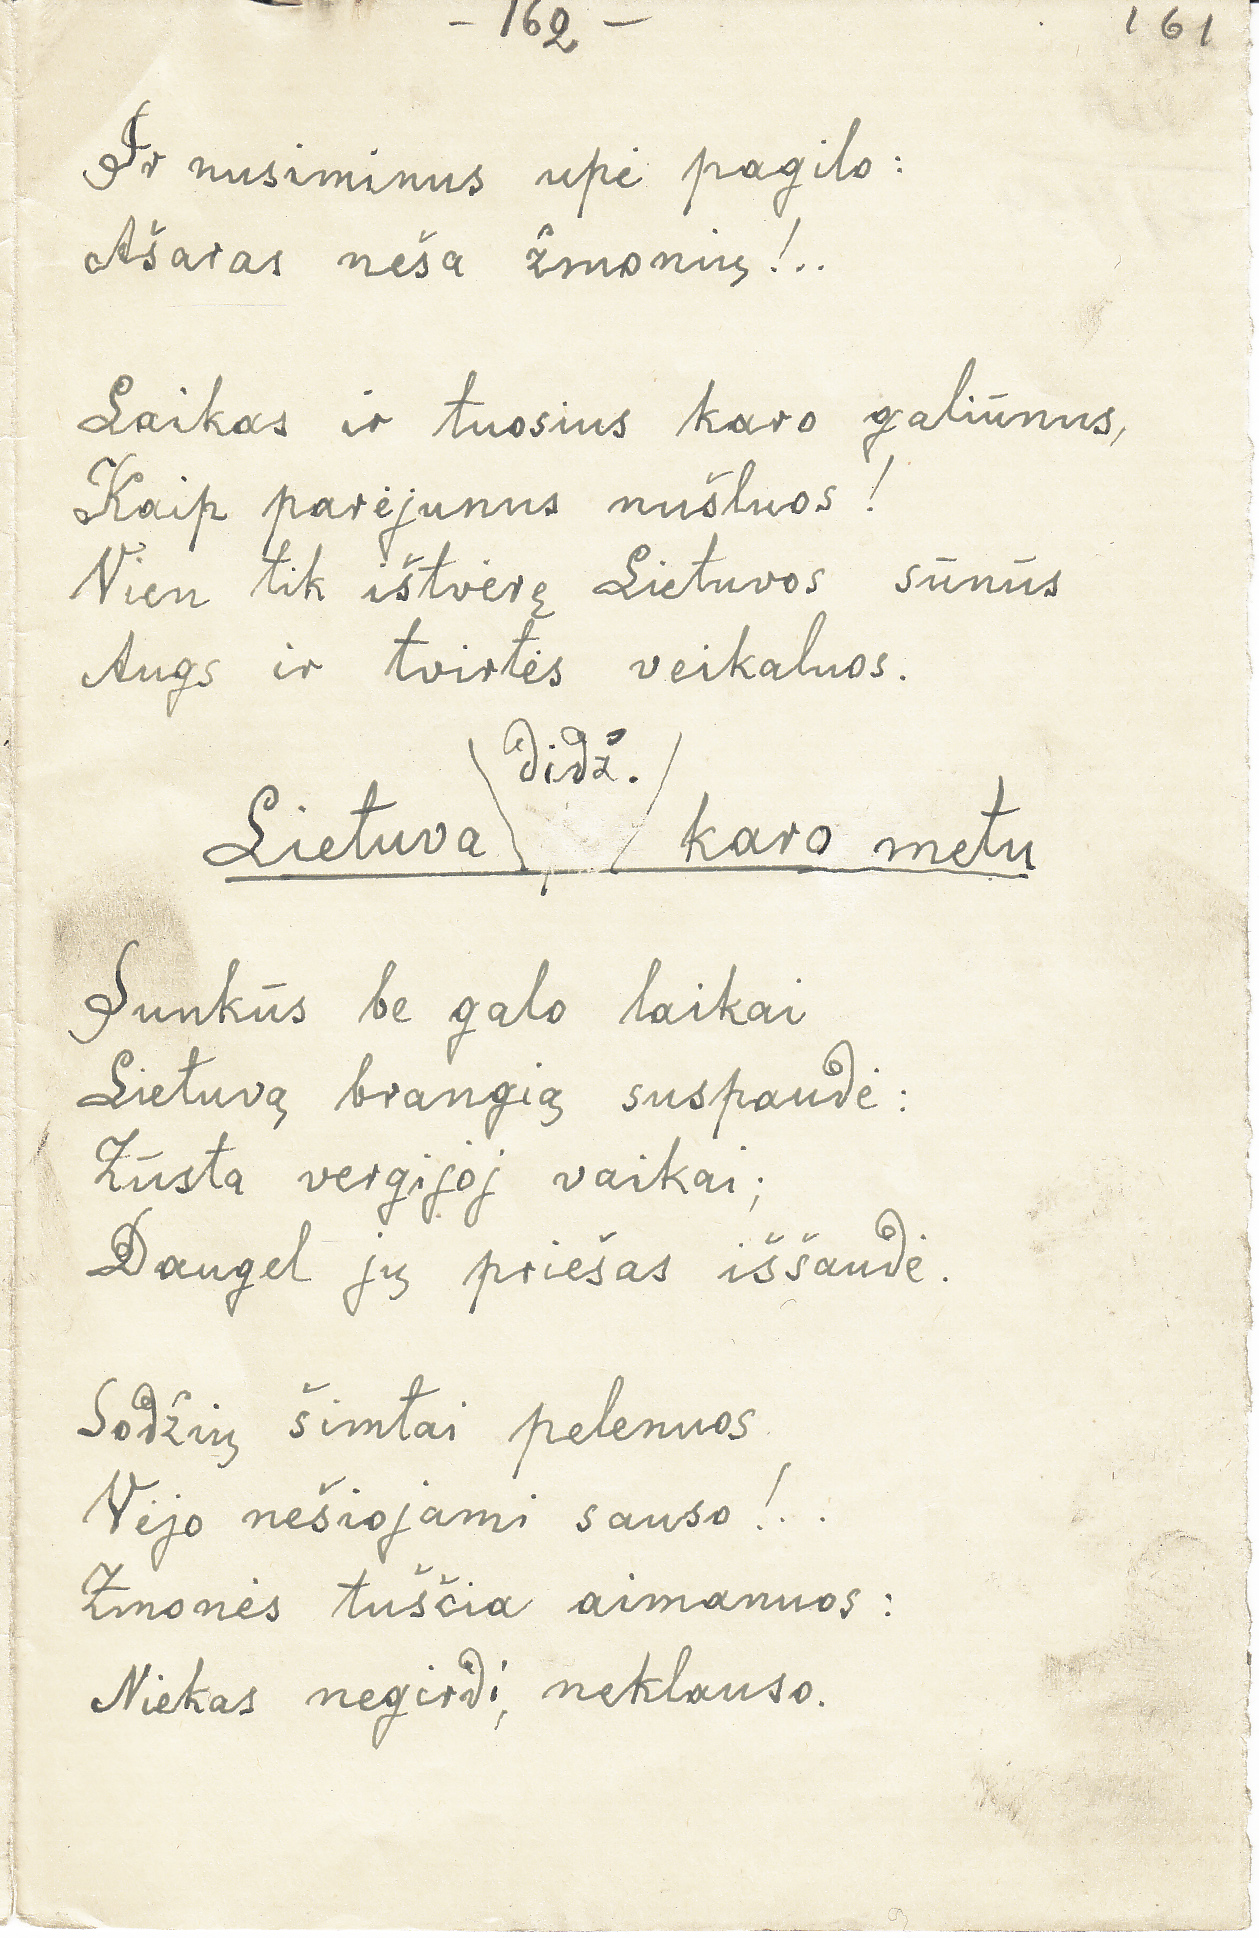 – 162 –
161
Ir nusiminus upė pagilo:
Ašaras neša žmonių!..
Laikas ir tuosius karo galiūnus,
Kaip parėjunus nušluos!
Vien tik ištvėrę Lietuvos sūnūs
Augs ir tvirtės veikaluos.
didž.
Lietuva karo metu
Sunkūs be galo laikai
Lietuvą brangią suspaudė:
Žūsta vergijoj vaikai;
Daugel jų priešas iššaudė.
Sodžių šimtai pelenuos
Vėjo nešiojami sauso!..
Žmonės tuščia aimanuos:
Niekas negirdi, neklauso.